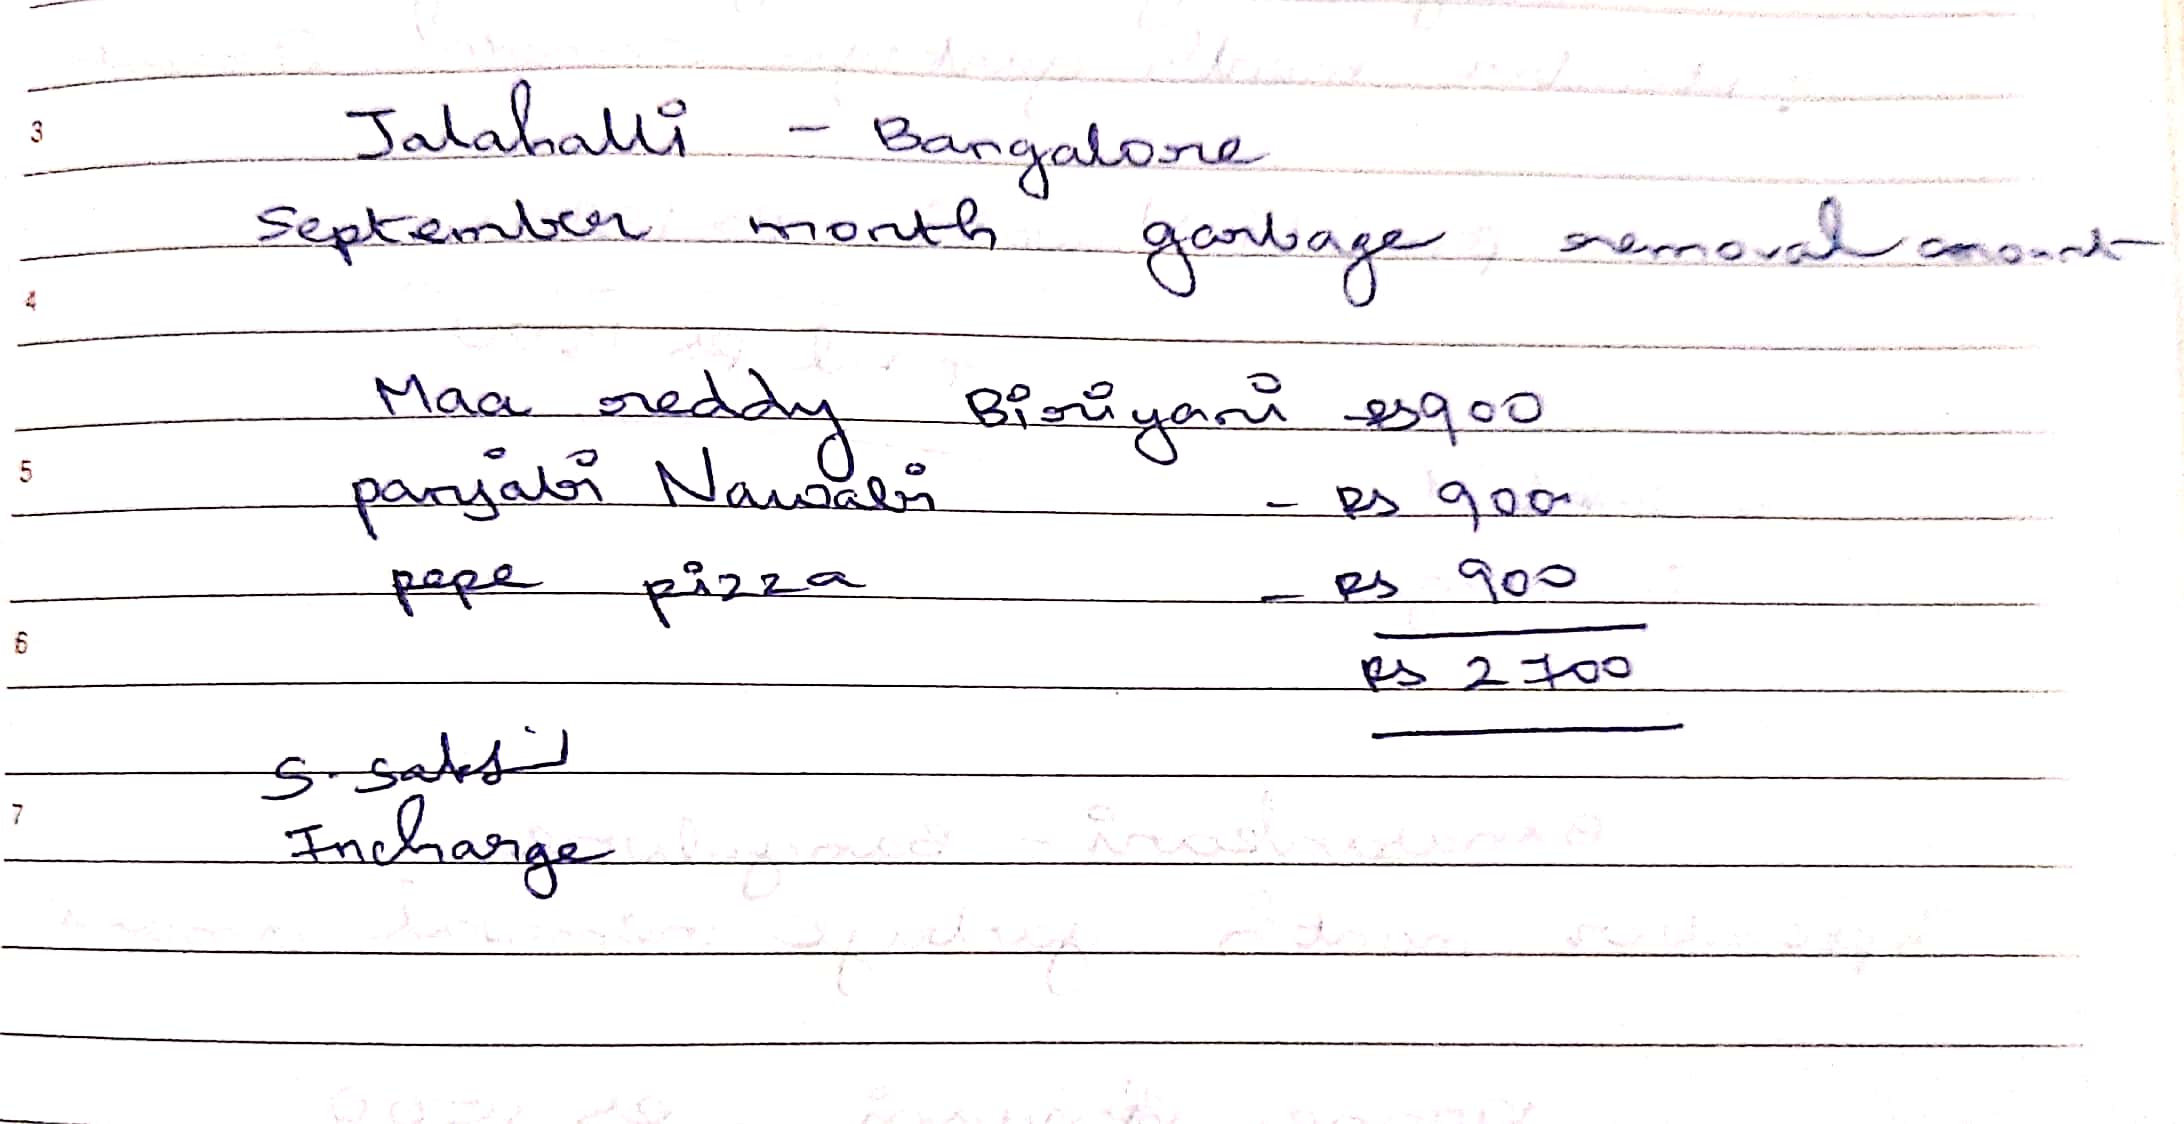 3
Jalahalli - Bangalore
September month garbage removal amount
4
Maa reddy Biriyani - Rs 900
5
panjabi Nawabi - Rs 900
pepe pizza - Rs 900
6
Rs 2700
S.
7
Incharge